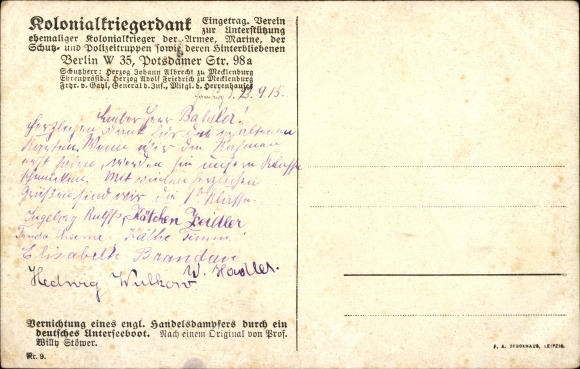 Kolonialkriegerdank Eingetrag. Verein
zur Unterstützung
ehemaliger Kolonialkrieger der Armee, Marine, der
Schutz- und Polizeitruppen sowie deren Hinterbliebenen
Berlin W 35, Potsdamer Str. 98a
Schutzherr: Herzog Johann Albrecht zu Mecklenburg
Ehrenpräsid.: Herzog Adolf Friedrich zu Mecklenburg
Frhr. v. Gayl, General d. Inf., Mitgl. d. Herrenhauses
9.15.
Lieber Herr
Herzlichen Dank für die erhaltenen
Karten. Wenn wir den Rahmen
erst haben, werden sie unsere Klasse
schmücken. Mit vielen herzlichen
Grüßen sind wir die 1. Klasse.
Ingeborg Kätchen Zeidler
Käthe Timm
Elisabeth Brandau
W. Hadler.
Hedwig Wulkow
Vernichtung eines engl. Handelsdampfers durch ein
deutsches Unterseeboot. Nach einem Original von Prof.
Willy Stöwer.
Nr. 9.
F. A. BROCKHAUS, LEIPZIG.